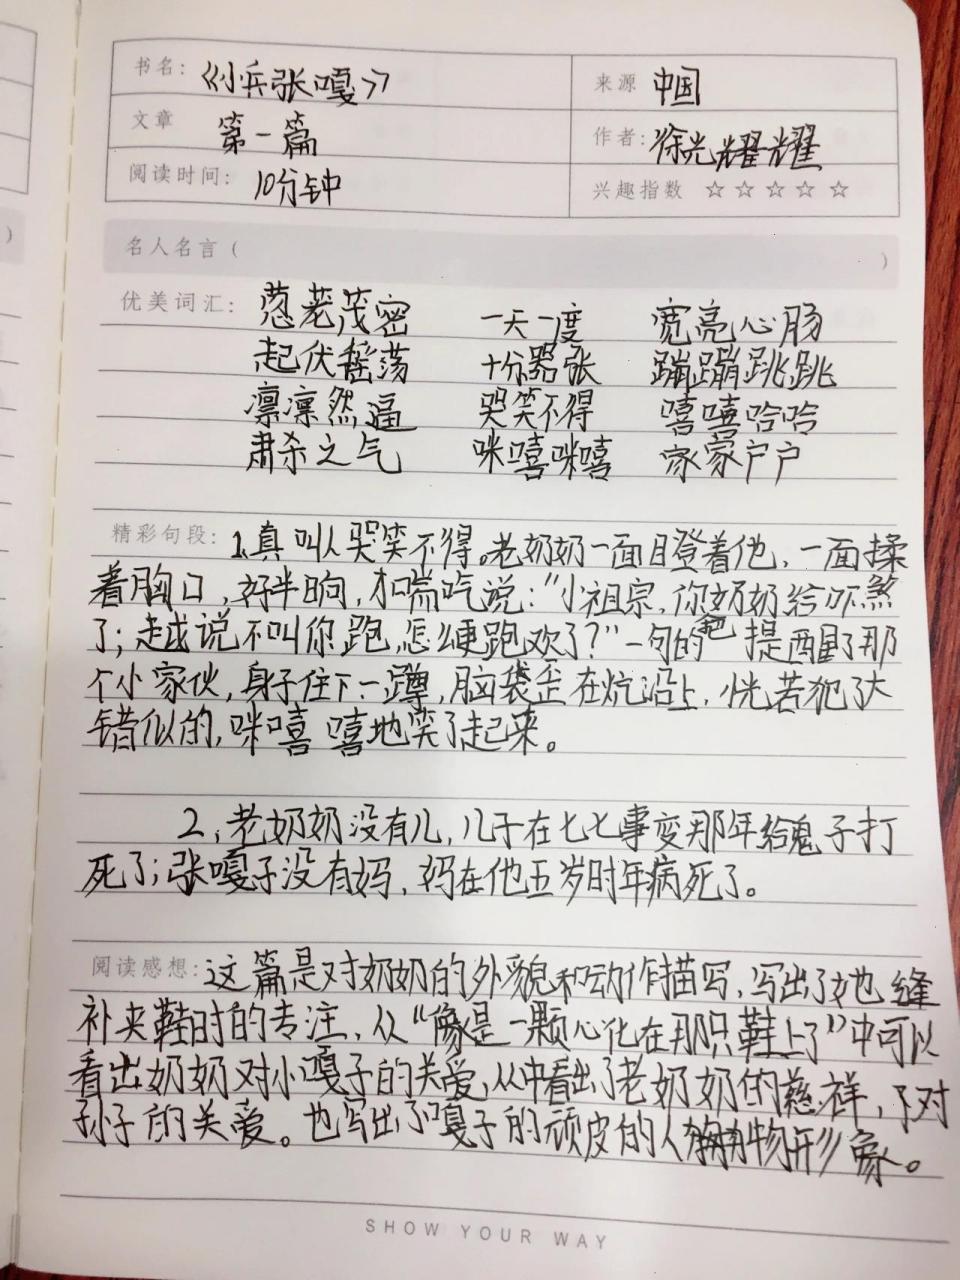 书名: 《小兵张嘎》 来源 中国
文章 第一篇 作者: 徐光耀耀
阅读时间: 10分钟 兴趣指数 ☆☆☆☆☆
名人名言 ( )
优美词汇: 葱茏茂密 一天一度 宽亮心肠
起伏摇荡 十分嚣张 蹦蹦跳跳
凛凛然逼 哭笑不得 嘻嘻哈哈
肃杀之气 咪嘻咪嘻 家家户户
精彩句段: 1.真叫人哭笑不得。老奶奶一面瞪着他,一面揉
着胸口,好半晌,才喘吃说:"小祖宗,你奶奶给吓煞
了;越说不叫你跑,怎么便跑欢了?"一句的把提醒了那
个小家伙,身子住下一蹲,脑袋歪在炕沿上,恍若犯了大
错似的,咪嘻嘻地笑了起来。
2,老奶奶没有儿,儿子在七七事变那年给鬼子打
死了;张嘎子没有妈,妈在他五岁时年病死了。
阅读感想: 这篇是对奶奶的外貌和动作描写,写出了她缝
补夹鞋时的专注,从"像是一颗心化在那只鞋上了"中可以
看出奶奶对小嘎子的关爱,从中看出了老奶奶的慈祥,对
孙子的关爱。也写出了嘎子的顽皮的人物形象。
SHOW YOUR WAY